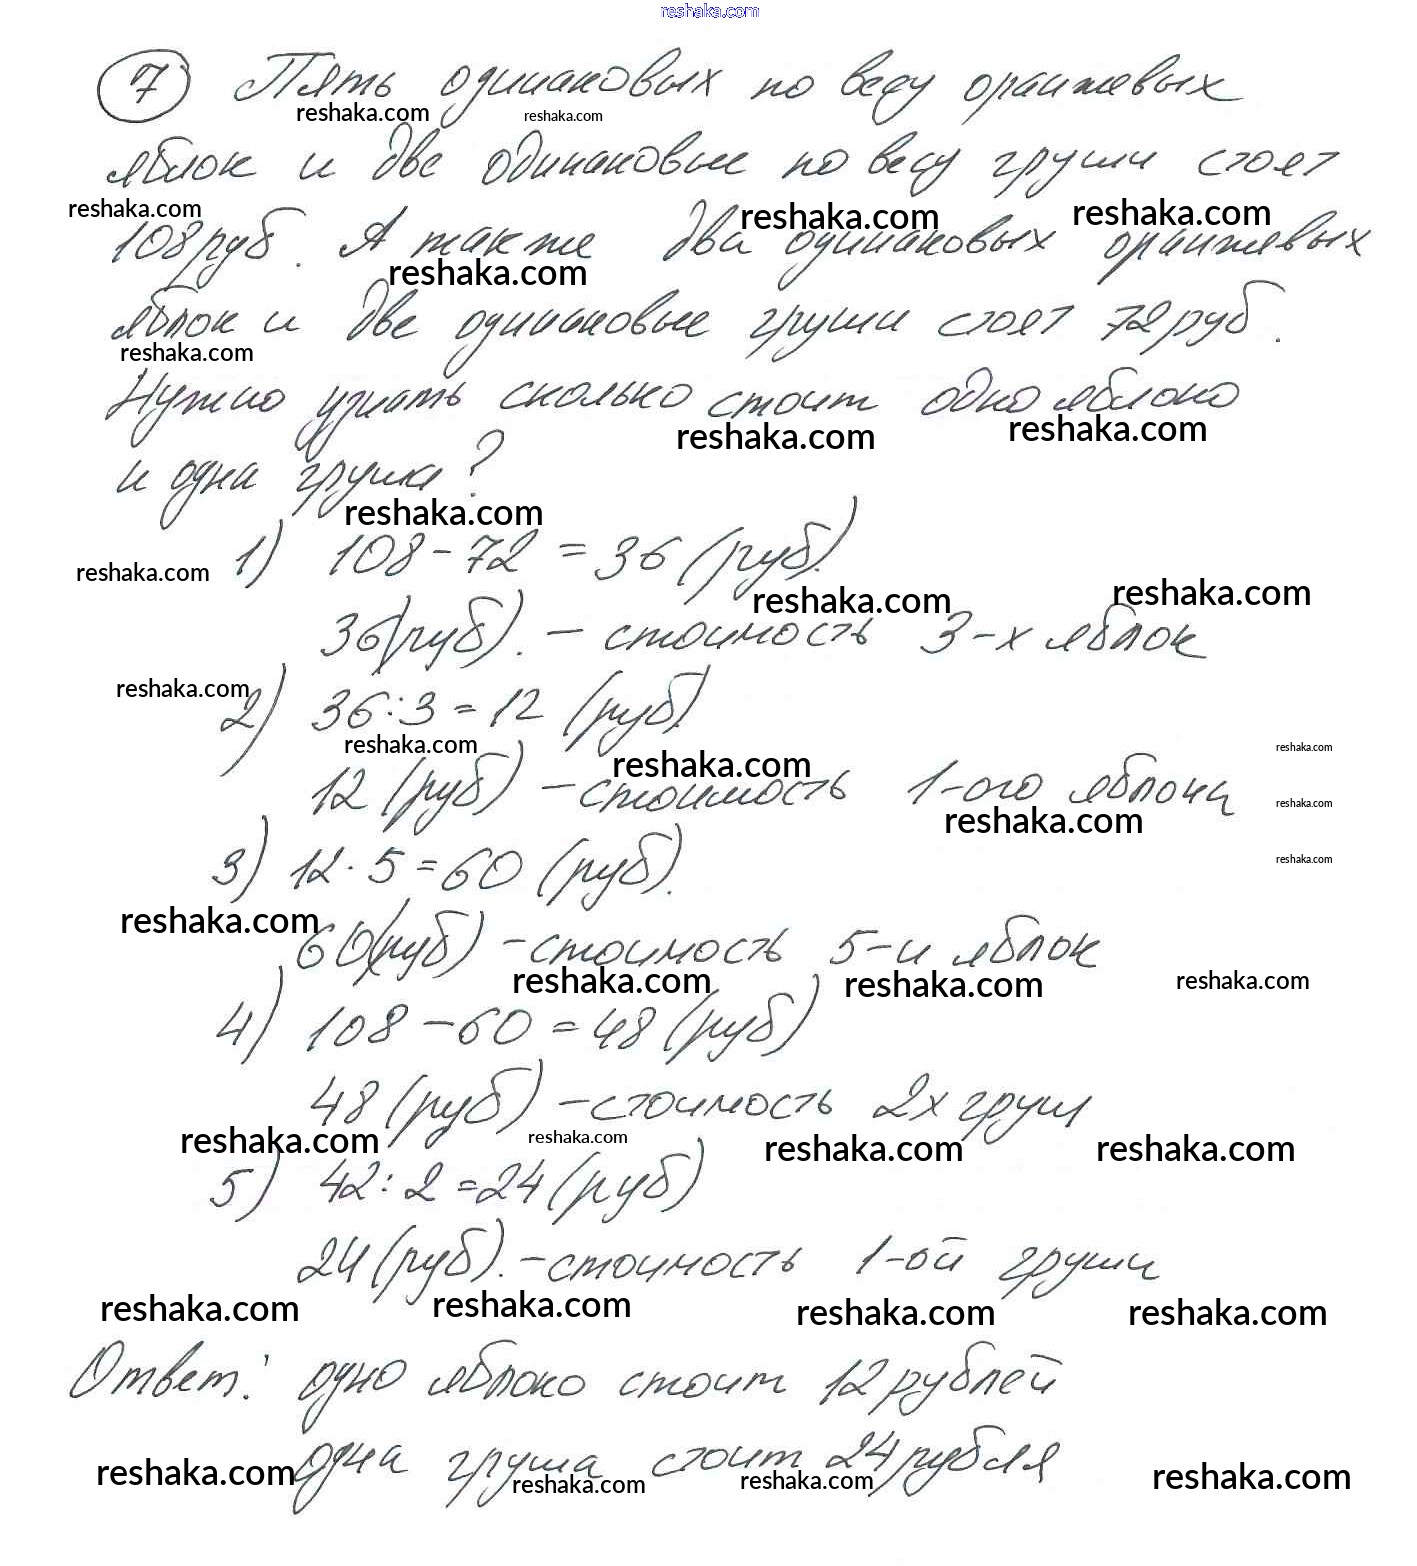 reshaka.com
7 Пять одинаковых по весу оранжевых
reshaka.com reshaka.com
яблок и две одинаковые по весу груши стоят
reshaka.com reshaka.com reshaka.com
108 руб. А также два одинаковых оранжевых
reshaka.com
яблок и две одинаковые груши стоят 72 руб.
reshaka.com
Нужно узнать сколько стоит одно яблоко
reshaka.com reshaka.com
и одна груша?
reshaka.com
1) 108 - 72 = 36 (руб).
reshaka.com reshaka.com reshaka.com
36 (руб). - стоимость 3-х яблок
reshaka.com
2) 36:3 = 12 (руб)
reshaka.com reshaka.com reshaka.com
12 (руб) - стоимость 1-ого яблока
reshaka.com reshaka.com
3) 12 · 5 = 60 (руб).
reshaka.com
reshaka.com
60 (руб) - стоимость 5-и яблок
reshaka.com reshaka.com reshaka.com
4) 108 - 60 = 48 (руб)
48 (руб) - стоимость 2х груш
reshaka.com reshaka.com reshaka.com reshaka.com
5) 42:2 = 24 (руб)
24 (руб). - стоимость 1-ой груши
reshaka.com reshaka.com reshaka.com reshaka.com
Ответ: одно яблоко стоит 12 рублей
одна груша стоит 24 рубля
reshaka.com reshaka.com reshaka.com reshaka.com